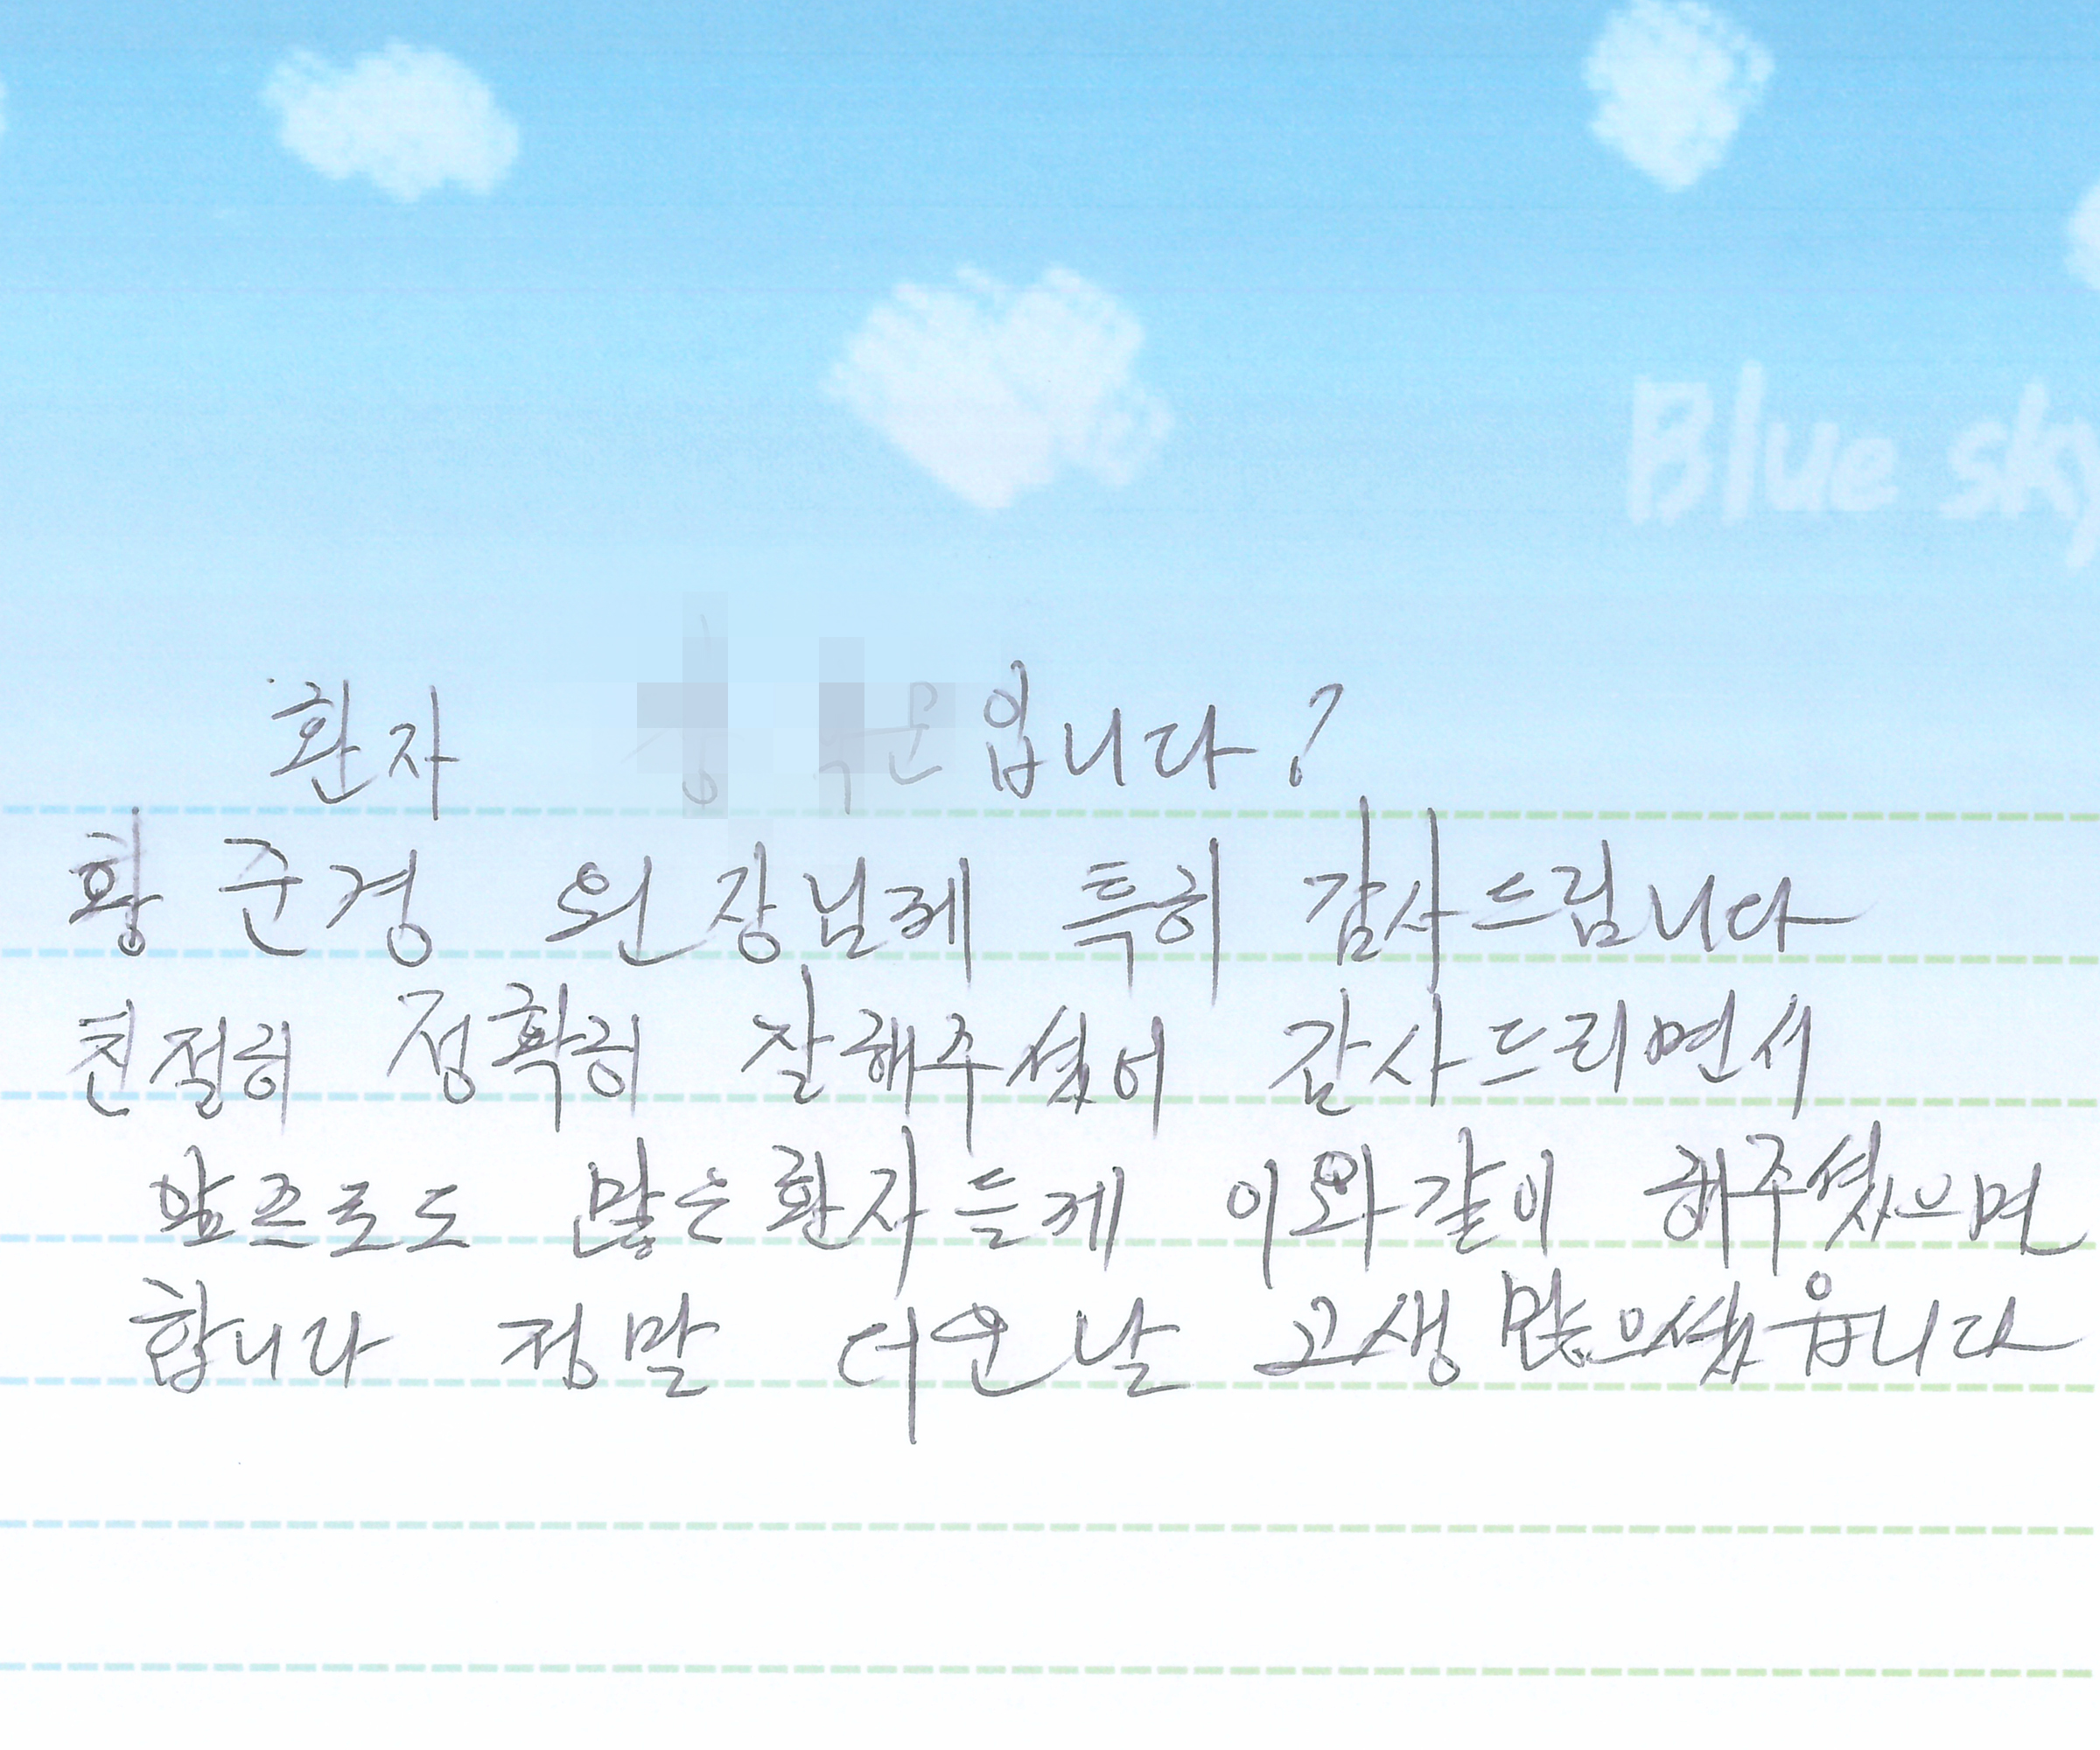 Blue sky
환자 입니다?
황 군경 원장님께 특히 감사드립니다
친절히 정확히 잘해주셨어 감사드리면서
앞으로도 많은환자들게 이와같이 해주셨으면
합니다 정말 더운날 고생 많으셨읍니다